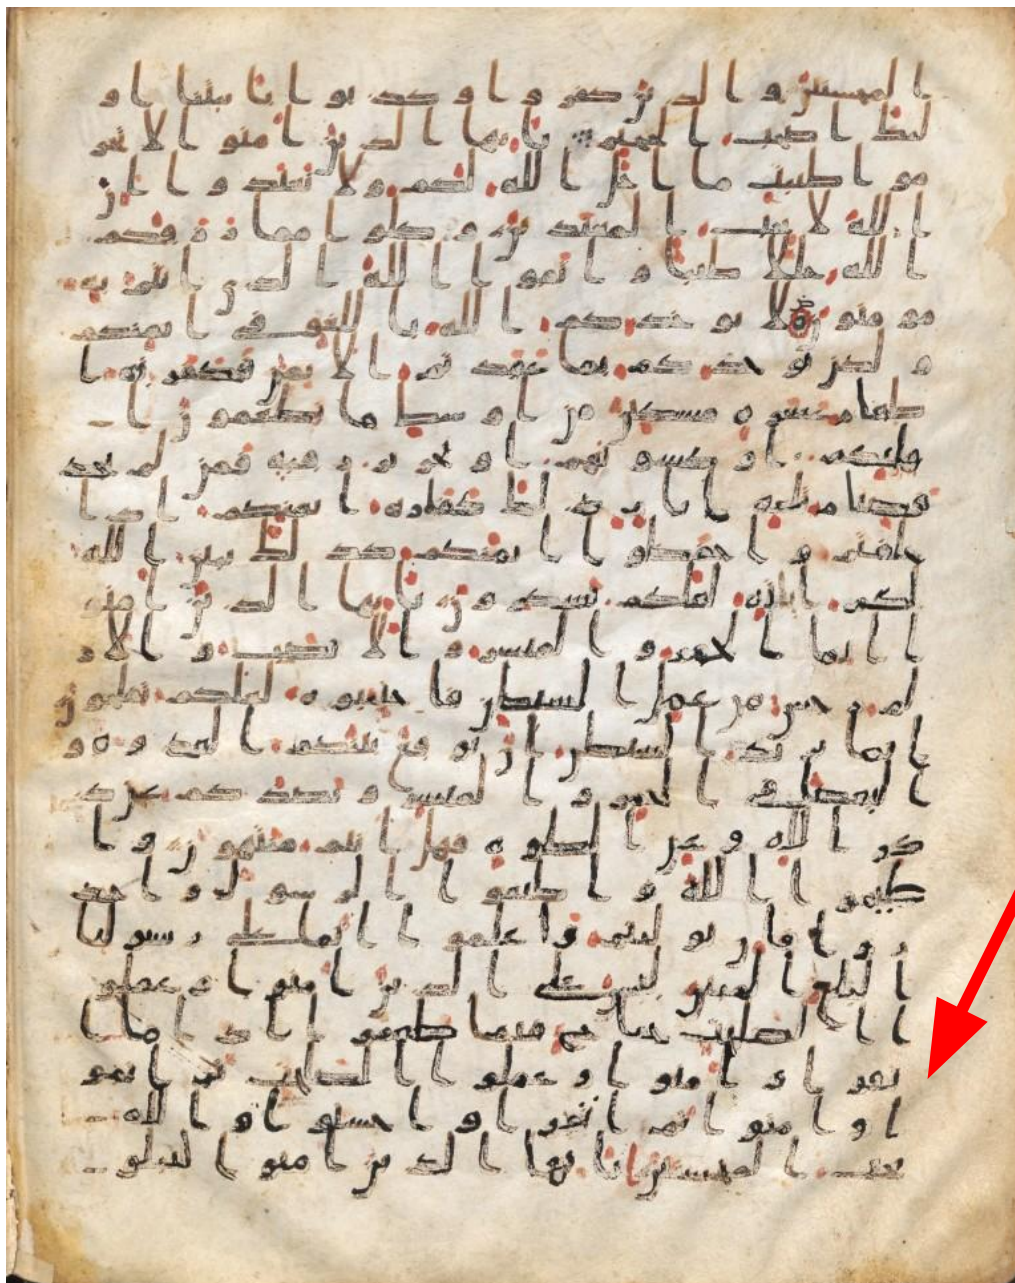 المحسنين والذين كفروا وكذبوا بايتنا او
لئك اصحب الجحيم يايها الذين امنوا لا تحر
موا طيبت ما احل الله لكم ولا تعتدوا ان
الله لا يحب المعتدين وكلوا مما رزقكم
الله حللا طيبا واتقوا الله الذي انتم به
مومنون لا يوخذكم الله باللغو في ايمنكم
ولكن يوخذكم بما عقدتم الايمن فكفرته ا
طعام عشره مسكين من اوسط ما تطعمون ا
هليكم او كسوتهم او تحرير رقبه فمن لم يجد
فصيام ثلثه ايام ذلك كفاره ايمنكم اذا
حلفتم واحفظوا ايمنكم كذلك يبين الله
لكم ايته لعلكم تشكرون يايها الذين امنو
ا انما الخمر والميسر والانصب والاز
لم رجس من عمل الشيطن فاجتنبوه لعلكم تفلحون
انما يريد الشيطن ان يوقع بينكم العدوه و
البغضا في الخمر والميسر ويصدكم عن ذ
كر الله وعن الصلوه فهل انتم منتهون وا
طيعوا الله واطيعوا الرسول واحذ
روا فان توليتم فاعلموا انما على رسولنا
البلغ المبين ليس على الذين امنوا وعملو
ا الصلحت جناح فيما طعموا اذا ما ا
تقوا وامنوا وعملوا الصلحت ثم اتقو
ا وامنوا ثم اتقوا واحسنوا والله
يحب المحسنين يايها الذين امنوا ليبلو